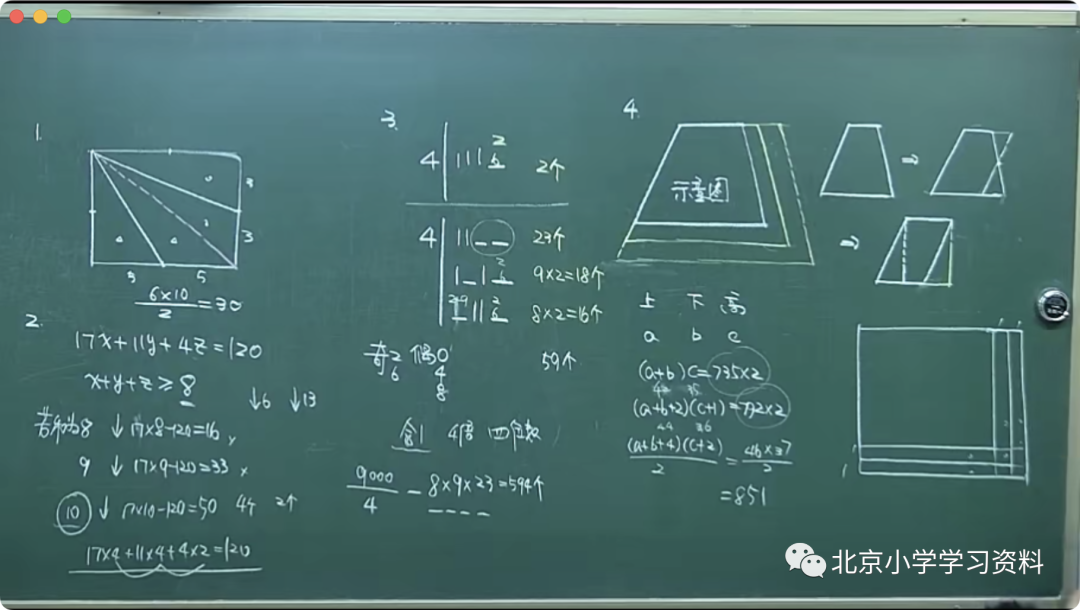 1.
3
3
5
5
6×10/2=30
2.
17x+11y+4z=120
x+y+z≥8
↓6 ↓13
若和为8 ↓17×8-120=16 ×
9 ↓17×9-120=33 ×
10 ↓17×10-120=50 4个 2个
17×4+11×4+4×2=120
3.
4 | 1 1 1 2/6 2个
4 | 1 1 _ _ 23个
1 _ 1 2/6 9×2=18个
2~9 1 1 2/6 8×2=16个
奇2 偶0
6 4
8
59个
含1 4倍 四位数
9000/4 - 8×9×23=594个
4.
示意图
上 下 高
a b c
(a+b)c=735×2
42 35
(a+b+2)(c+1)=792×2
44 36
(a+b+4)(c+2)/2=46×37/2
=851
1 1
1
1
北京小学学习资料